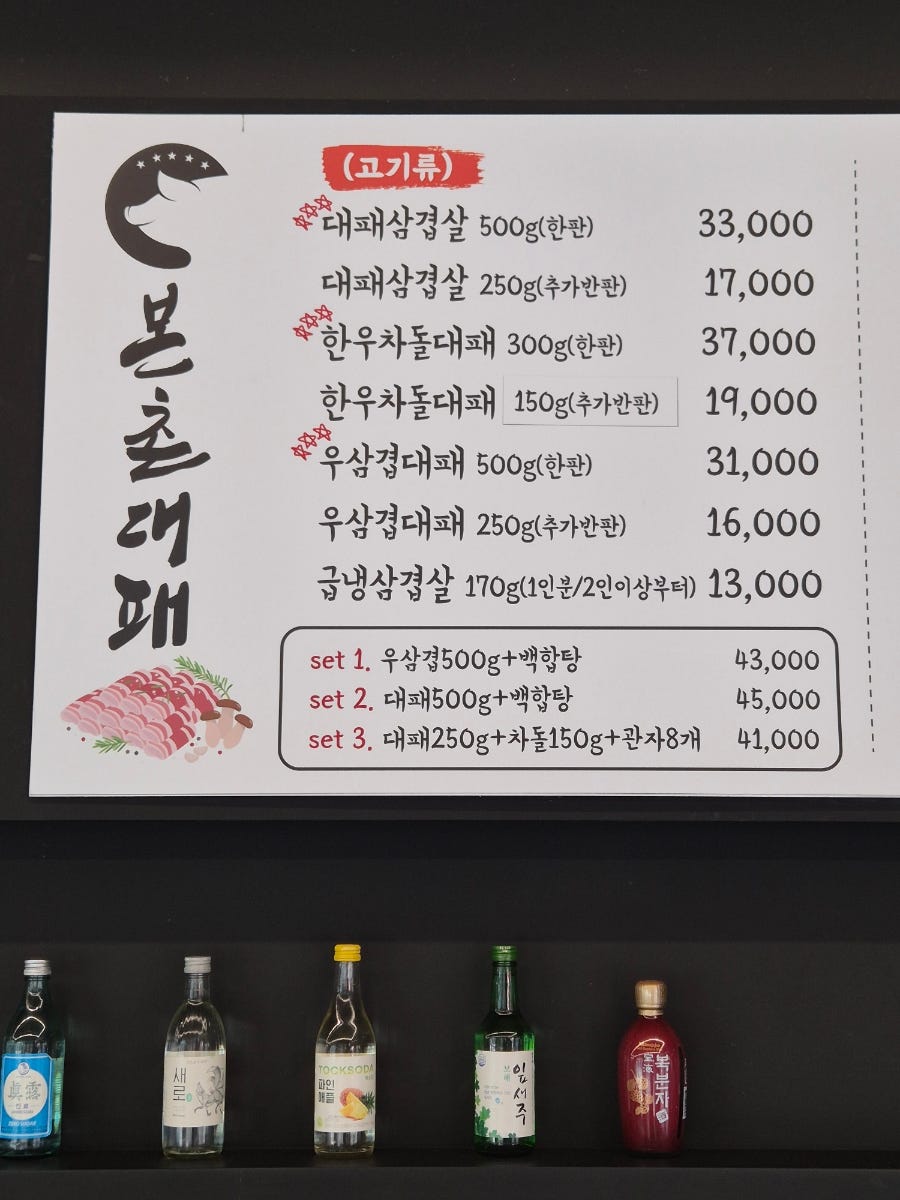 본촌대패
(고기류)
대패삼겹살 500g(한판) 33,000
대패삼겹살 250g(추가반판) 17,000
한우차돌대패 300g(한판) 37,000
한우차돌대패 150g(추가반판) 19,000
우삼겹대패 500g(한판) 31,000
우삼겹대패 250g(추가반판) 16,000
급냉삼겹살 170g(1인분/2인이상부터) 13,000
set 1. 우삼겹500g+백합탕 43,000
set 2. 대패500g+백합탕 45,000
set 3. 대패250g+차돌150g+관자8개 41,000
眞露
진로
ZERO SUGAR
새로
TOCKSODA
파인애플
잎새주
복분자